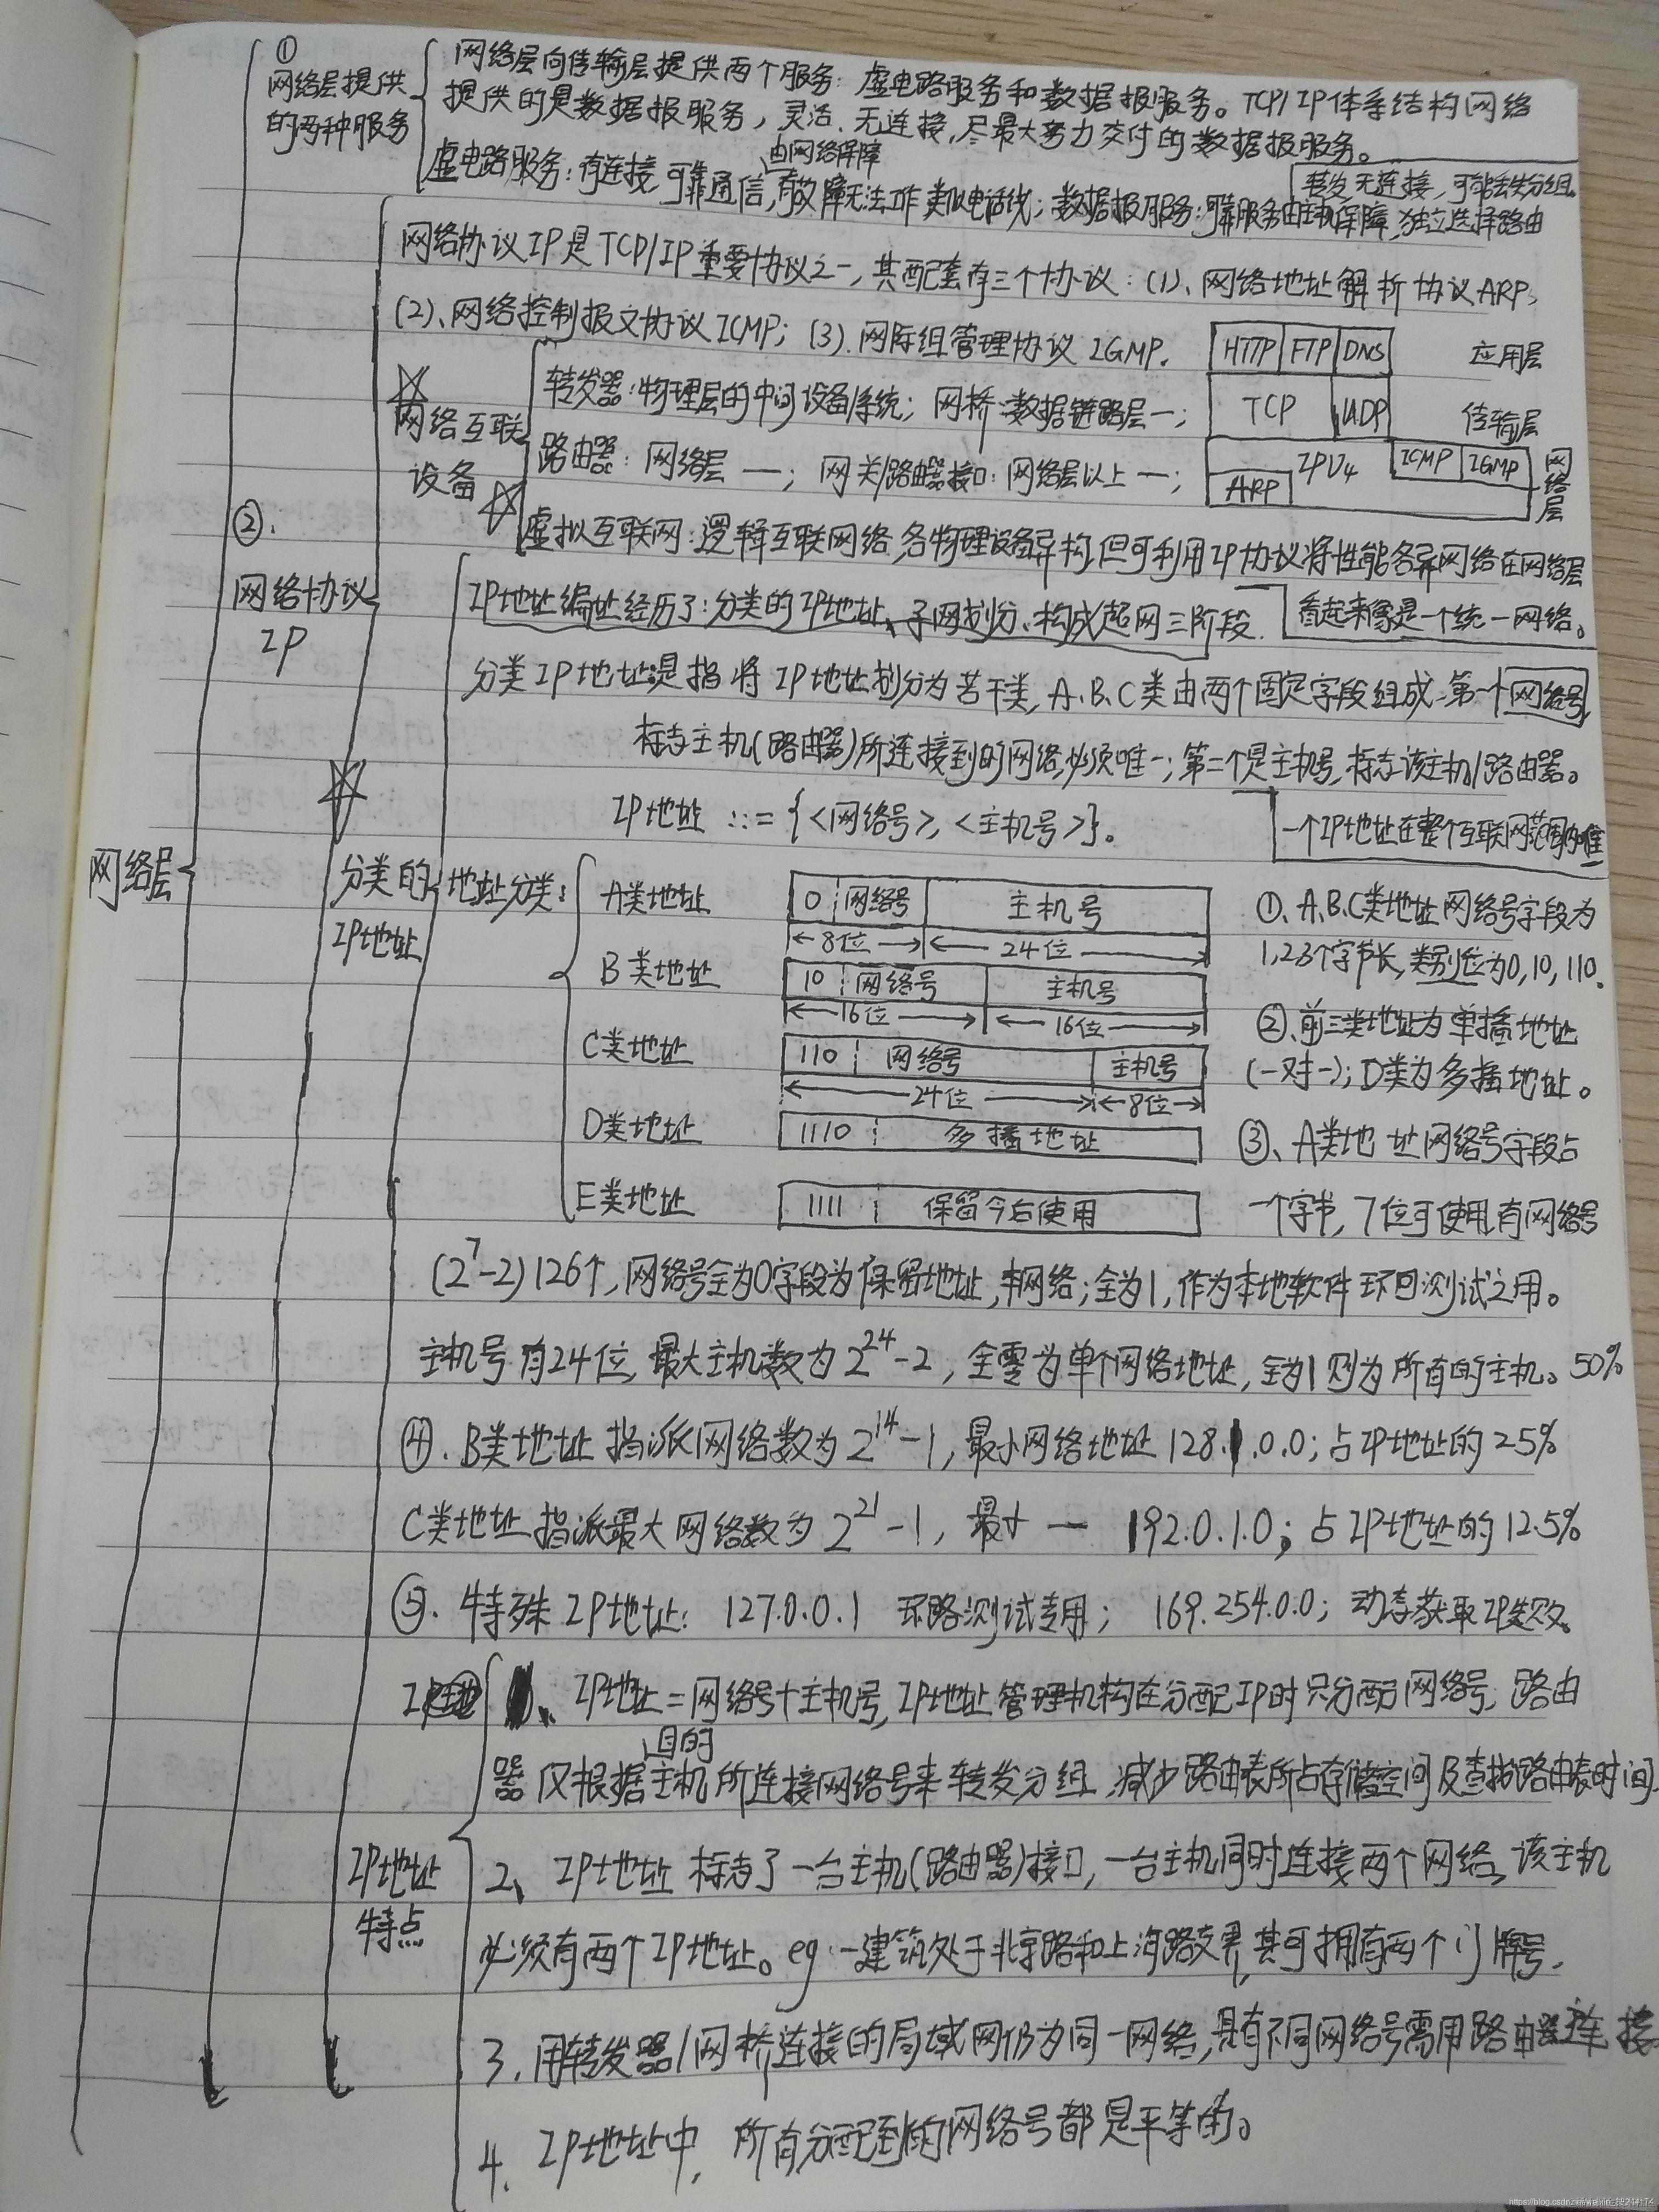 ①
网络层提供
的两种服务
网络层向传输层提供两个服务：虚电路服务和数据报服务。TCP/IP体系结构网络
提供的是数据报服务，灵活、无连接，尽最大努力交付的数据报服务。
由网络保障
转发无连接，可能丢失分组。
虚电路服务：有连接 可靠通信，有故障无法工作 类似电话线；数据报服务：可靠服务由主机保障，独立选择路由
②.
网络协议
IP
网络协议IP是TCP/IP重要协议之一，其配套有三个协议：(1)、网络地址解析协议ARP、
(2)、网络控制报文协议ICMP；(3).网际组管理协议 IGMP.
HTTP FTP DNS 应用层
TCP UDP 传输层
IPV4 ICMP IGMP 网络层
ARP
网络互联
设备
转发器：物理层的中间设备/系统；网桥：数据链路层一；
路由器：网络层 一；网关/路由器接口：网络层以上 一；
虚拟互联网：逻辑互联网络，各物理设备异构，但可利用IP协议将性能各异网络在网络层
看起来像是一个统一网络。
网络层
分类的
IP地址
IP地址编址经历了：分类的IP地址、子网划分、构成超网三阶段.
分类IP地址是指将IP地址划分为若干类，A.B.C类由两个固定字段组成：第一个网络号，
标志主机(路由器)所连接到的网络，必须唯一；第二个是主机号，标志该主机/路由器。
IP地址 ::= {<网络号>, <主机号>}。
一个IP地址在整个互联网范围内唯一
地址分类：
A类地址 0 网络号 主机号
8位 24位
B类地址 10 网络号 主机号
16位 16位
C类地址 110 网络号 主机号
24位 8位
D类地址 1110 多播地址
E类地址 1111 保留今后使用
①、A.B.C类地址网络号字段为
1,2,3个字节长，类别位为0,10,110.
②.前三类地址为单播地址
(一对一)；D类为多播地址。
③、A类地址网络号字段占
一个字节，7位可使用，有网络号
(2^7-2)126个，网络号全为0字段为保留地址，本网络；全为1，作为本地软件环回测试之用。
主机号有24位，最大主机数为2^24-2，全零为单个网络地址，全为1则为所有的主机。50%
④.B类地址指派网络数为2^14-1，最小网络地址 128.1.0.0；占IP地址的25%
C类地址指派最大网络数为2^21-1，最小 一 192.0.1.0；占IP地址的12.5%
⑤.特殊IP地址：127.0.0.1 环路测试专用；169.254.0.0；动态获取IP失败。
IP地址
特点
IP地址=网络号+主机号，IP地址管理机构在分配IP时只分配网络号，路由
目的
器仅根据主机所连接网络号来转发分组，减少路由表所占存储空间及查找路由表时间.
2、IP地址标志了一台主机(路由器)接口，一台主机同时连接两个网络，该主机
必须有两个IP地址。eg：一建筑处于北京路和上海路交界，其可拥有两个门牌号.
3.用转发器/网桥连接的局域网仍为同一网络，具有不同网络号需用路由器连接
4.IP地址中，所有分配到的网络号都是平等的。